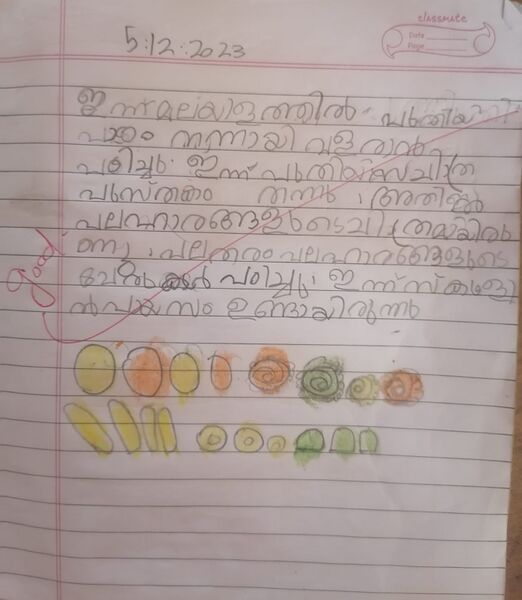 classmate
Date
Page
5.12.2023
ഇന്ന് മലയാളത്തിൽ പുതിയ
പാഠം നന്നായി വളരാൻ
പഠിച്ചു. ഇന്ന് പുതിയ സചിത്ര
പുസ്തകം തന്നു. അതിൽ
പലഹാരങ്ങളുടെ ചിത്രമായിരു
ന്നു. പലതരം പലഹാരങ്ങളുടെ
പേരുകൾ പഠിച്ചു. ഇന്ന് സ്കൂളി
ൽ പായസം ഉണ്ടായിരുന്നു
good